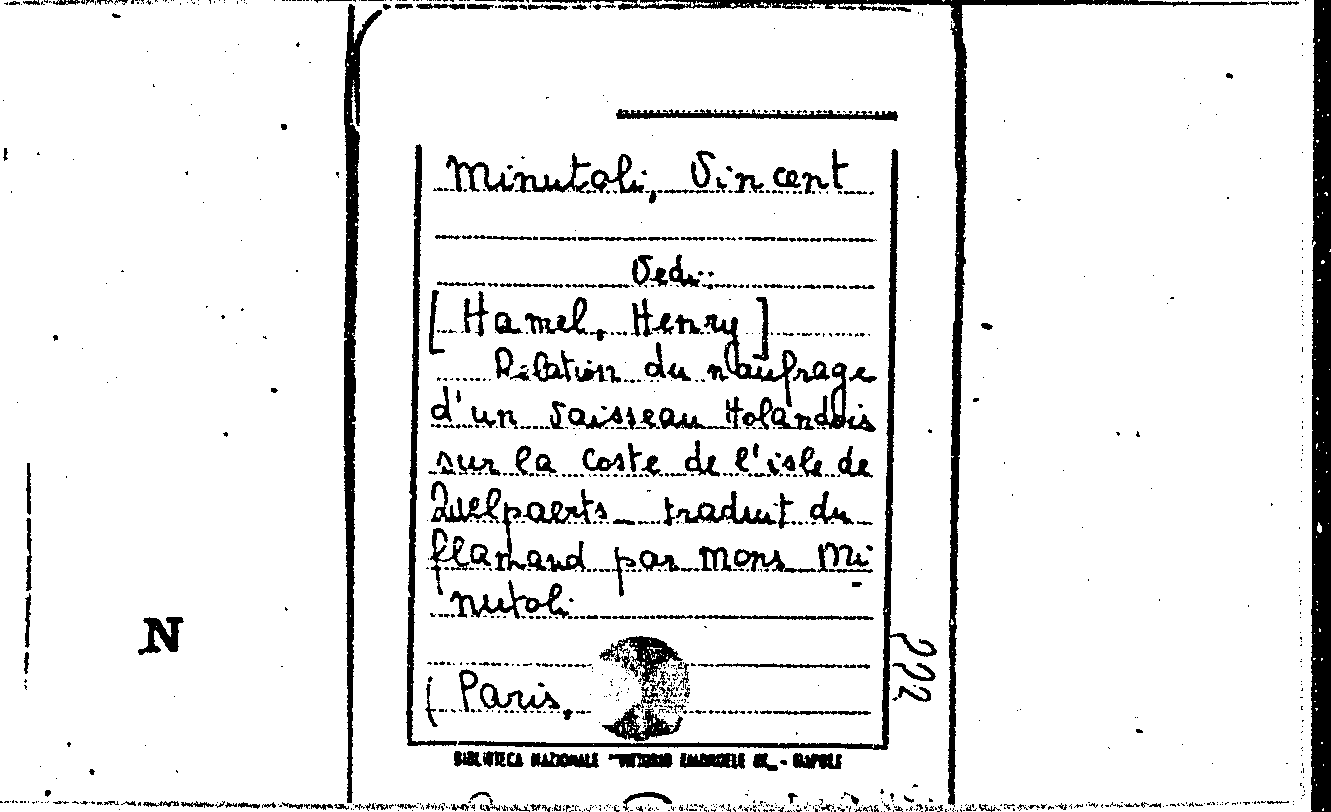 Minutoli, Vincent
Vedi:
[Hamel, Henry]
Relation du naufrage
d'un vaisseau Holandois
sur la Coste de l'isle de
Quelpaerts_ traduit du
flamand par Mons Mi-
nutoli
(Paris,
222
N
BIBLIOTECA NAZIONALE "VITTORIO EMANUELE III_ - NAPOLI